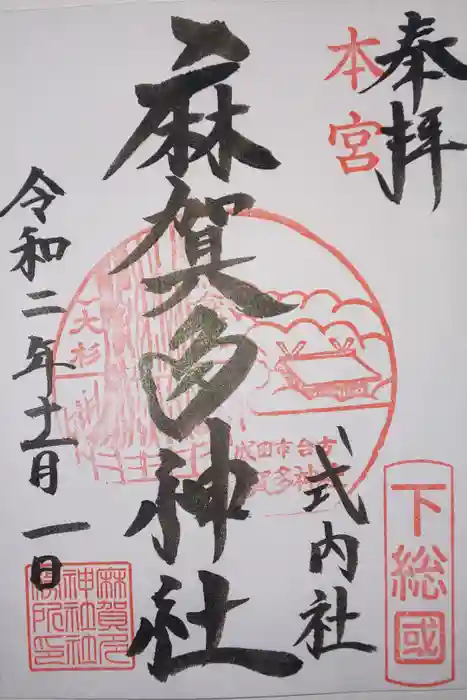 奉拝
本宮
麻賀多神社
式内社
下総國
大杉
成田市台方
麻賀多神社社務所印
令和二年十一月一日